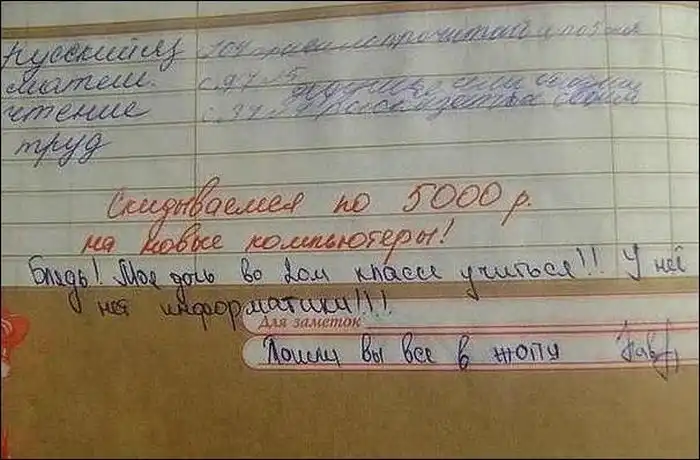 русский яз
матем. с. 97 № 5
чтение
труд
Скидываемся по 5000 р.
на новые компьютеры!
Блядь! Моя дочь во 2ом классе учиться!!! У неё
нет информатики!!!!
Для заметок
Пошли вы все в жопу